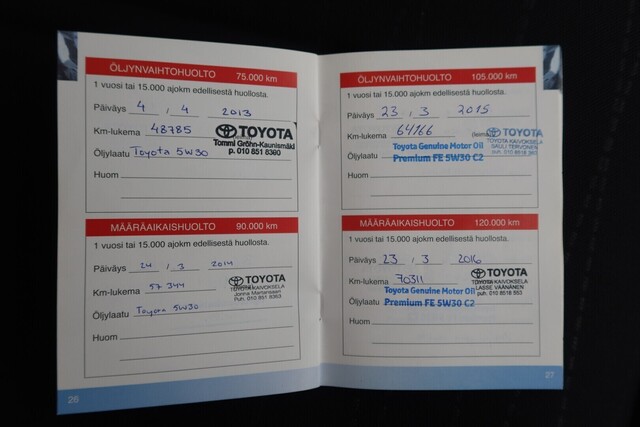 ÖLJYNVAIHTOHUOLTO 75.000 km
1 vuosi tai 15.000 ajokm edellisestä huollosta.
Päiväys 4 / 4 2013
Km-lukema 48785
TOYOTA
Tommi Gröhn-Kaunismäki
p. 010 851 8380
Öljylaatu Toyota 5W30
Huom
MÄÄRÄAIKAISHUOLTO 90.000 km
1 vuosi tai 15.000 ajokm edellisestä huollosta.
Päiväys 24 / 3 2014
Km-lukema 57344
TOYOTA
TOYOTA KAIVOKSELA
Puh. 010 851 8383
Öljylaatu Toyota 5W30
Huom
26
ÖLJYNVAIHTOHUOLTO 105.000 km
1 vuosi tai 15.000 ajokm edellisestä huollosta.
Päiväys 23 / 3 2015
Km-lukema 64166 (leima)
TOYOTA
TOYOTA KAIVOKSELA
SAULI TERVONEN
Öljylaatu Toyota Genuine Motor Oil
Premium FE 5W30 C2
Huom
MÄÄRÄAIKAISHUOLTO 120.000 km
1 vuosi tai 15.000 ajokm edellisestä huollosta.
Päiväys 23 / 3 2016
Km-lukema 70311
TOYOTA
TOYOTA KAIVOKSELA
LASSE VÄÄNÄNEN
Öljylaatu Toyota Genuine Motor Oil
Premium FE 5W30 C2
Huom
27